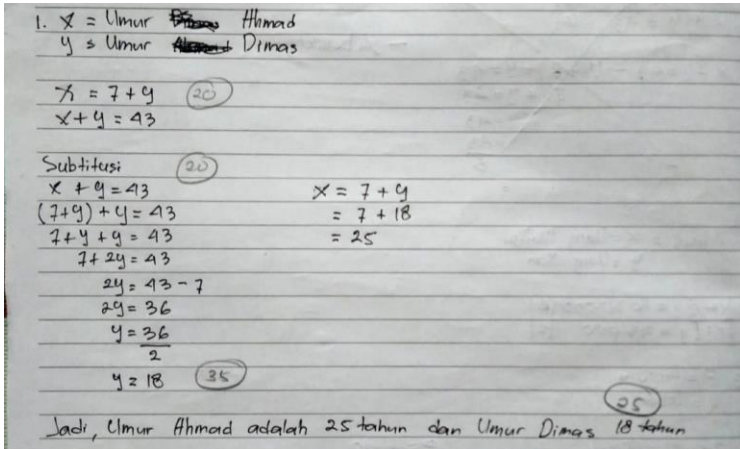 1. x = Umur Ahmad
y = Umur Dimas
x = 7 + y (20)
x + y = 43
Subtitusi (20)
x + y = 43
(7+y) + y = 43
7 + y + y = 43
7 + 2y = 43
2y = 43 - 7
2y = 36
y = 36/2
y = 18 (35)
x = 7 + y
= 7 + 18
= 25
(25)
Jadi, Umur Ahmad adalah 25 tahun dan Umur Dimas 18 tahun